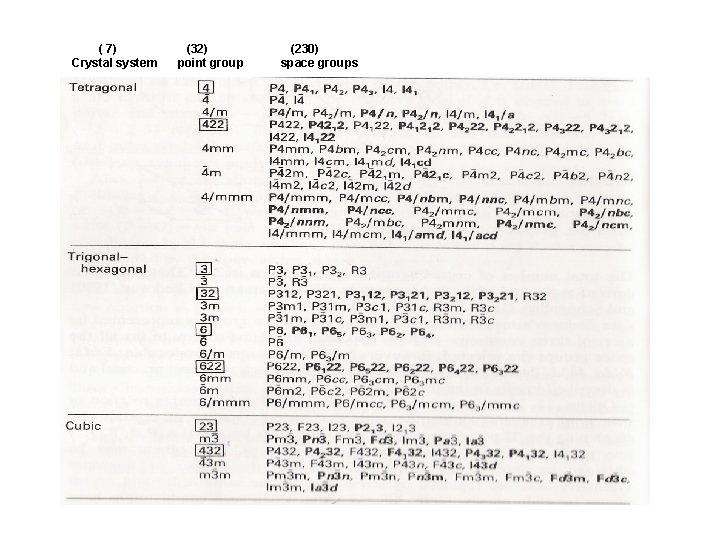 ( 7) (32) (230)
Crystal system point group space groups
Tetragonal 4 P4, P4₁, P4₂, P4₃, I4, I4₁
4̄ P4̄, I4̄
4/m P4/m, P4₂/m, P4/n, P4₂/n, I4/m, I4₁/a
422 P422, P42₁2, P4₁22, P4₁2₁2, P4₂22, P4₂2₁2, P4₃22, P4₃2₁2,
I422, I4₁22
4mm P4mm, P4bm, P4₂cm, P4₂nm, P4cc, P4nc, P4₂mc, P4₂bc,
I4mm, I4cm, I4₁md, I4₁cd
4̄m P4̄2m, P4̄2c, P4̄2₁m, P4̄2₁c, P4̄m2, P4̄c2, P4̄b2, P4̄n2,
I4̄m2, I4̄c2, I4̄2m, I4̄2d
4/mmm P4/mmm, P4/mcc, P4/nbm, P4/nnc, P4/mbm, P4/mnc,
P4/nmm, P4/ncc, P4₂/mmc, P4₂/mcm, P4₂/nbc,
P4₂/nnm, P4₂/mbc, P4₂mnm, P4₂/nmc, P4₂/ncm,
I4/mmm, I4/mcm, I4₁/amd, I4₁/acd
Trigonal–
hexagonal 3 P3, P3₁, P3₂, R3
3̄ P3̄, R3̄
32 P312, P321, P3₁12, P3₁21, P3₂12, P3₂21, R32
3m P3m1, P31m, P3c1, P31c, R3m, R3c
3̄m P3̄1m, P3̄1c, P3̄m1, P3̄c1, R3̄m, R3̄c
6 P6, P6₁, P6₅, P6₃, P6₂, P6₄,
6̄ P6̄
6/m P6/m, P6₃/m
622 P622, P6₁22, P6₅22, P6₂22, P6₄22, P6₃22
6mm P6mm, P6cc, P6₃cm, P6₃mc
6̄m P6̄m2, P6̄c2, P6̄2m, P6̄2c
6/mmm P6/mmm, P6/mcc, P6₃/mcm, P6₃/mmc
Cubic 23 P23, F23, I23, P2₁3, I2₁3
m3̄ Pm3̄, Pn3̄, Fm3̄, Fd3̄, Im3̄, Pa3̄, Ia3̄
432 P432, P4₂32, F432, F4₁32, I432, P4₃32, P4₁32, I4₁32
4̄3m P4̄3m, F4̄3m, I4̄3m, P4̄3n, F4̄3c, I4̄3d
m3̄m Pm3̄m, Pn3̄n, Pm3̄n, Pn3̄m, Fm3̄m, Fm3̄c, Fd3̄m, Fd3̄c,
Im3̄m, Ia3̄d